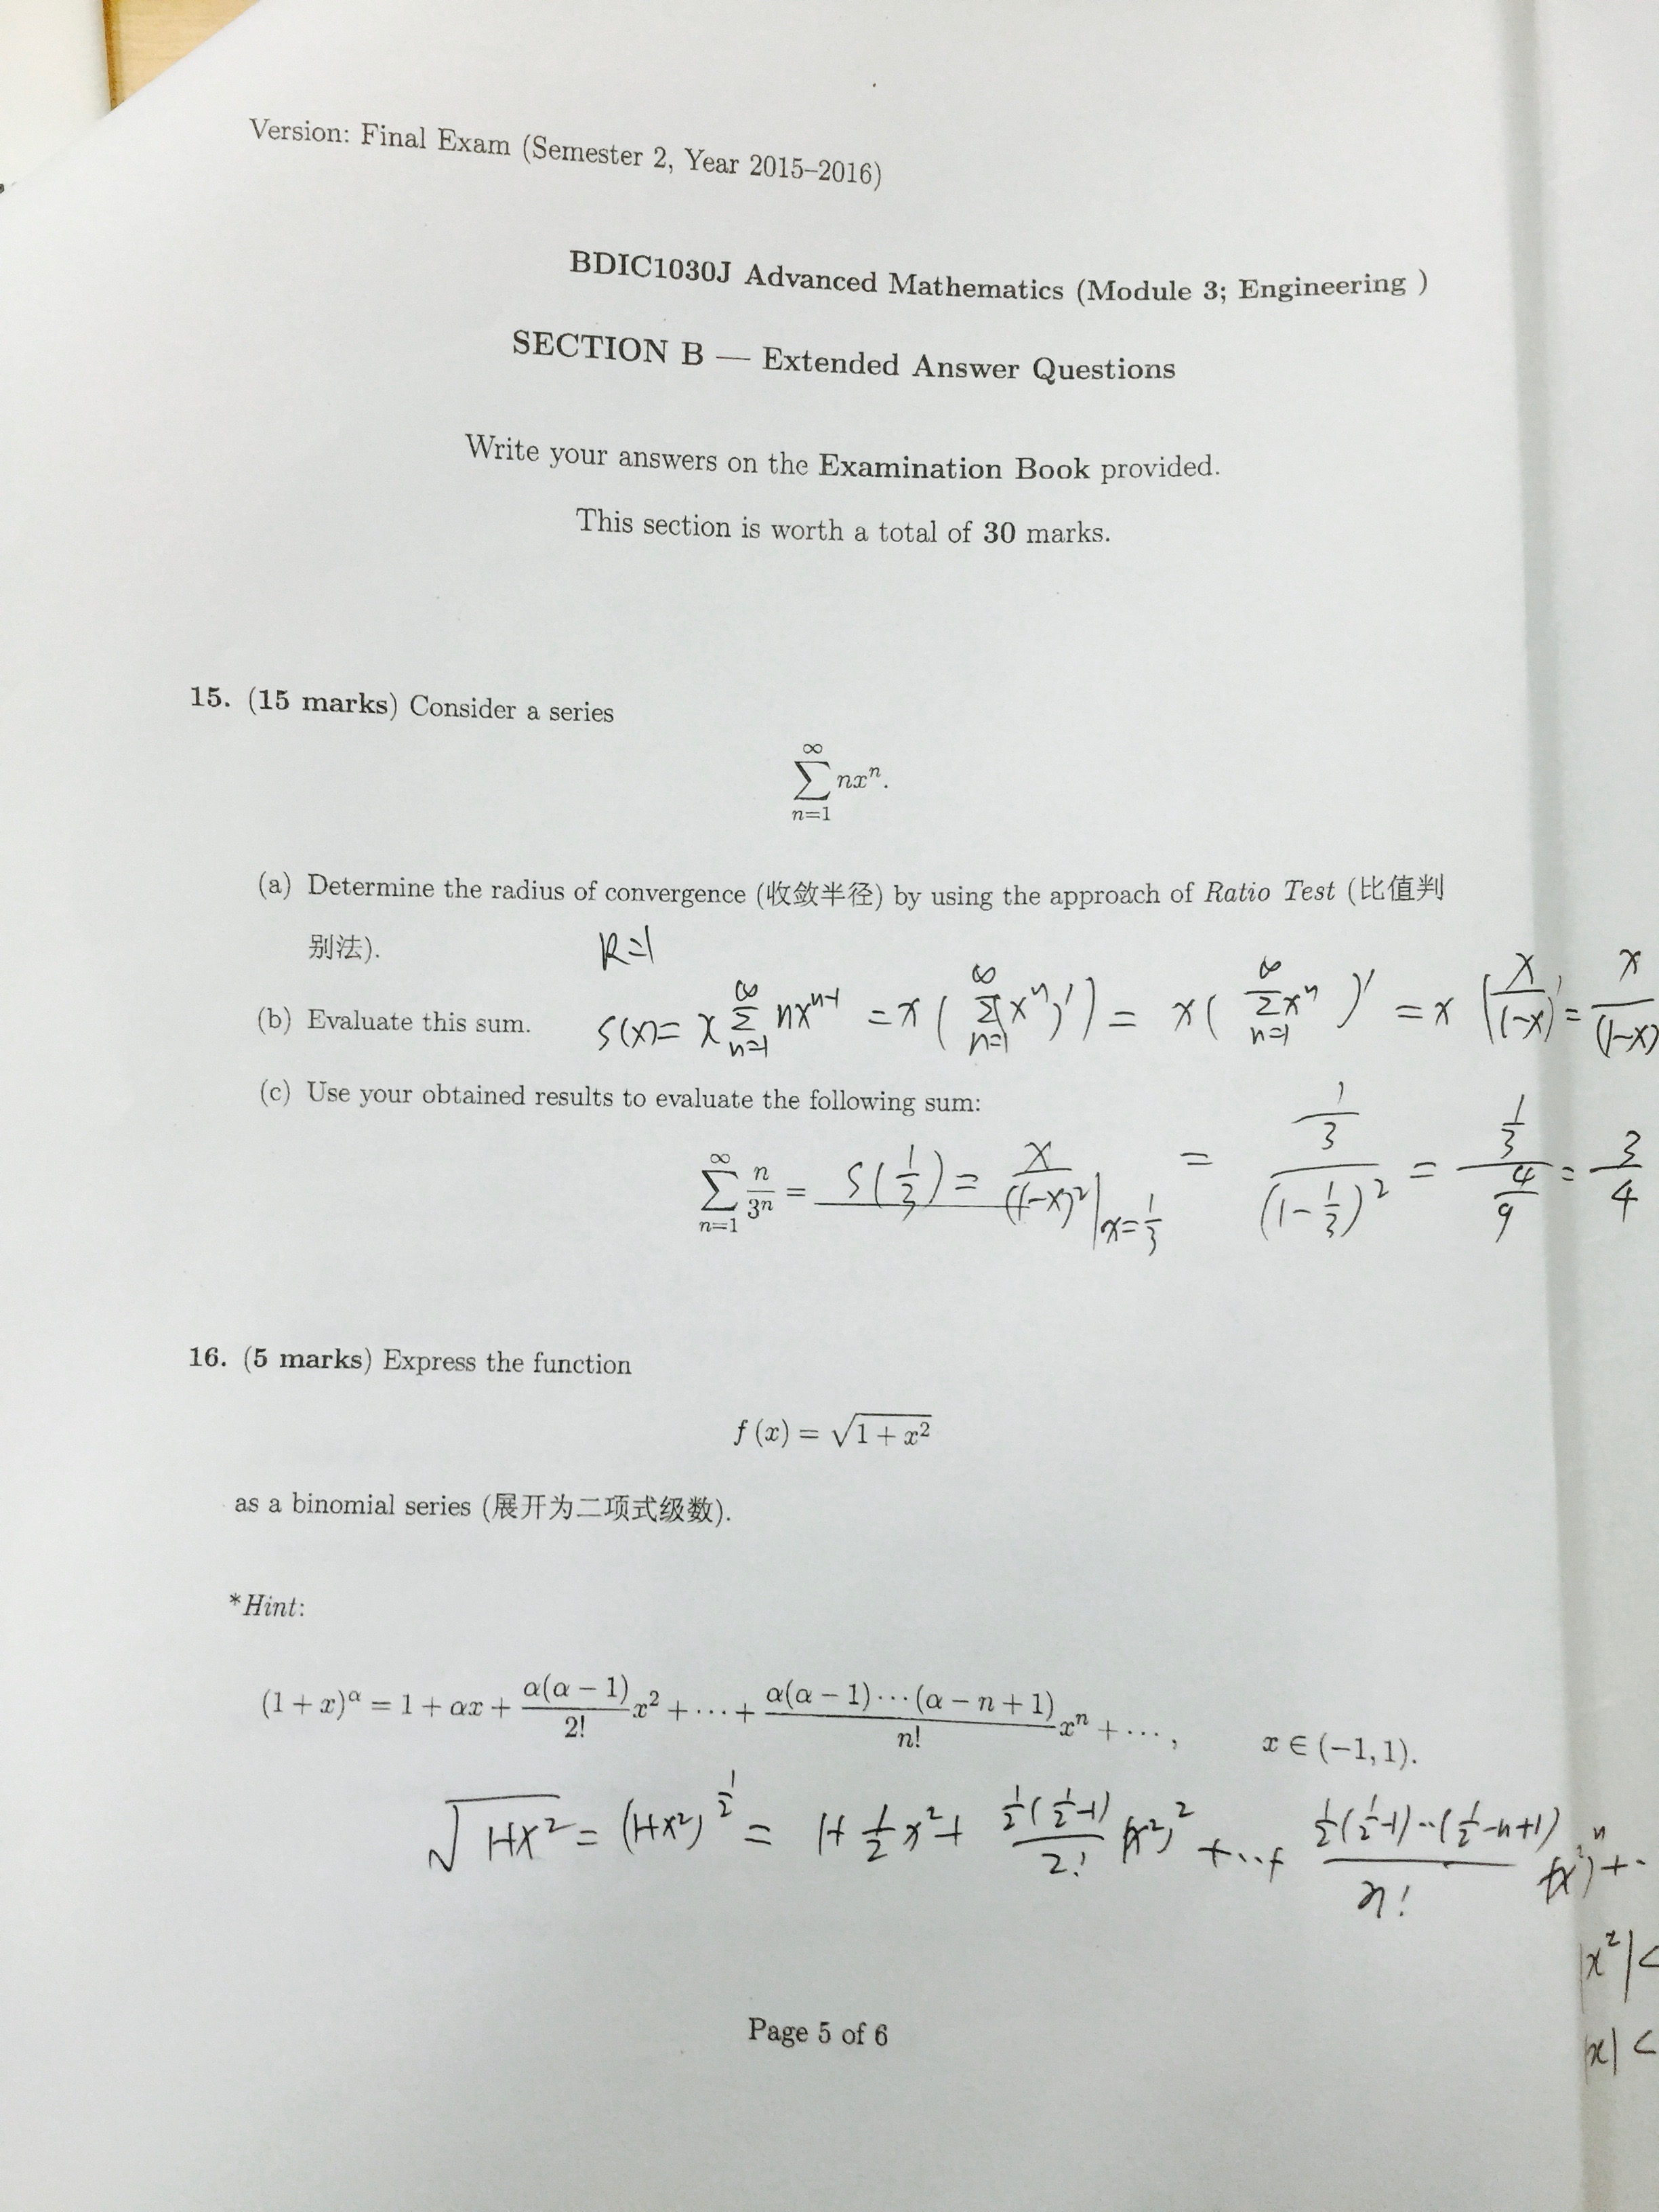 Version: Final Exam (Semester 2, Year 2015–2016)
BDIC1030J Advanced Mathematics (Module 3; Engineering )
SECTION B — Extended Answer Questions
Write your answers on the Examination Book provided.
This section is worth a total of 30 marks.
15. (15 marks) Consider a series
∑_{n=1}^{∞} nxⁿ.
(a) Determine the radius of convergence (收敛半径) by using the approach of Ratio Test (比值判
别法). R=1
(b) Evaluate this sum. S(x)= x ∑_{n=1}^{∞} nx^{n-1} = x ( ∑_{n=1}^{∞} (xⁿ)′ ) = x ( ∑_{n=1}^{∞} xⁿ )′ = x (x/(1-x))′ = x/(1-x)
(c) Use your obtained results to evaluate the following sum:
∑_{n=1}^{∞} n/3ⁿ = S(1/3) = x/(1-x)² |_{x=1/3} = (1/3)/(1-1/3)² = (1/3)/(4/9) = 3/4
16. (5 marks) Express the function
f (x) = √(1 + x²)
as a binomial series (展开为二项式级数).
*Hint:
(1 + x)^α = 1 + αx + α(α − 1)/2! x² + ··· + α(α − 1)···(α − n + 1)/n! xⁿ + ··· , x ∈ (−1, 1).
√(1+x²) = (1+x²)^{1/2} = 1+ 1/2 x² + 1/2(1/2-1)/2! (x²)² + ... + 1/2(1/2-1)...(1/2-n+1)/n! (x²)ⁿ + ..
|x²| <
|x| <
Page 5 of 6